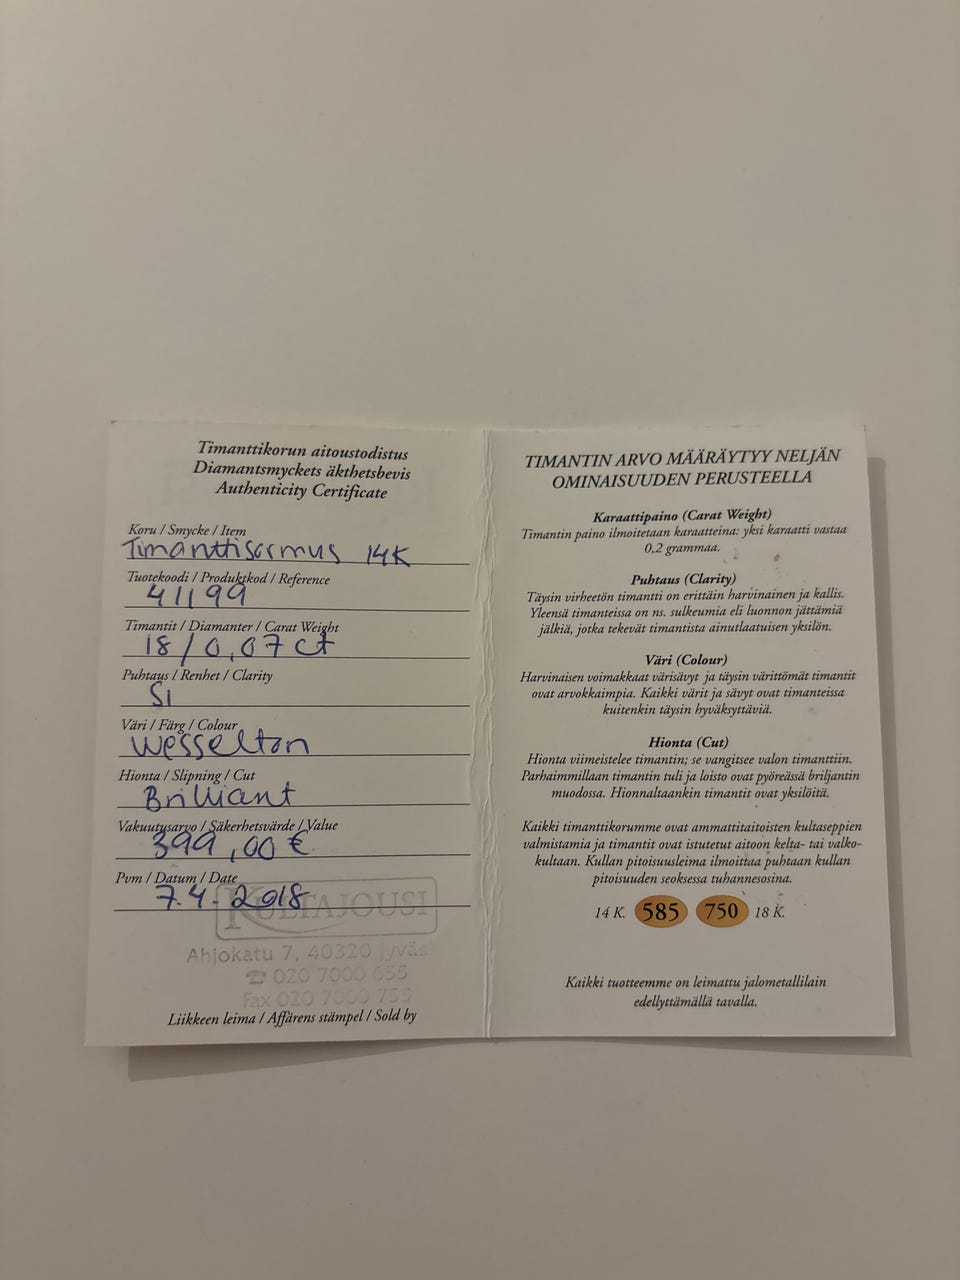 Timanttikorun aitoustodistus
Diamantsmyckets äkthetsbevis
Authenticity Certificate
Koru / Smycke / Item
Timanttisormus 14K
Tuotekoodi / Produktkod / Reference
41199
Timantit / Diamanter / Carat Weight
18/0,07 ct
Puhtaus / Renhet / Clarity
SI
Väri / Färg / Colour
Wesselton
Hionta / Slipning / Cut
Brilliant
Vakuutusarvo / Säkerhetsvärde / Value
399,00 €
Pvm / Datum / Date
7.4.2018
KULTAJOUSI
Ahjokatu 7, 40320 Jyväs
☎ 020 7000 655
Fax 020 7000 755
Liikkeen leima / Affärens stämpel / Sold by
TIMANTIN ARVO MÄÄRÄYTYY NELJÄN
OMINAISUUDEN PERUSTEELLA
Karaattipaino (Carat Weight)
Timantin paino ilmoitetaan karaatteina: yksi karaatti vastaa
0,2 grammaa.
Puhtaus (Clarity)
Täysin virheetön timantti on erittäin harvinainen ja kallis.
Yleensä timanteissa on ns. sulkeumia eli luonnon jättämiä
jälkiä, jotka tekevät timantista ainutlaatuisen yksilön.
Väri (Colour)
Harvinaisen voimakkaat värisävyt ja täysin värittömät timantit
ovat arvokkaimpia. Kaikki värit ja sävyt ovat timanteissa
kuitenkin täysin hyväksyttäviä.
Hionta (Cut)
Hionta viimeistelee timantin; se vangitsee valon timanttiin.
Parhaimmillaan timantin tuli ja loisto ovat pyöreässä briljantin
muodossa. Hionnaltaankin timantit ovat yksilöitä.
Kaikki timanttikorumme ovat ammattitaitoisten kultaseppien
valmistamia ja timantit ovat istutetut aitoon kelta- tai valko-
kultaan. Kullan pitoisuusleima ilmoittaa puhtaan kullan
pitoisuuden seoksessa tuhannesosina.
14 K. 585 750 18 K.
Kaikki tuotteemme on leimattu jalometallilain
edellyttämällä tavalla.